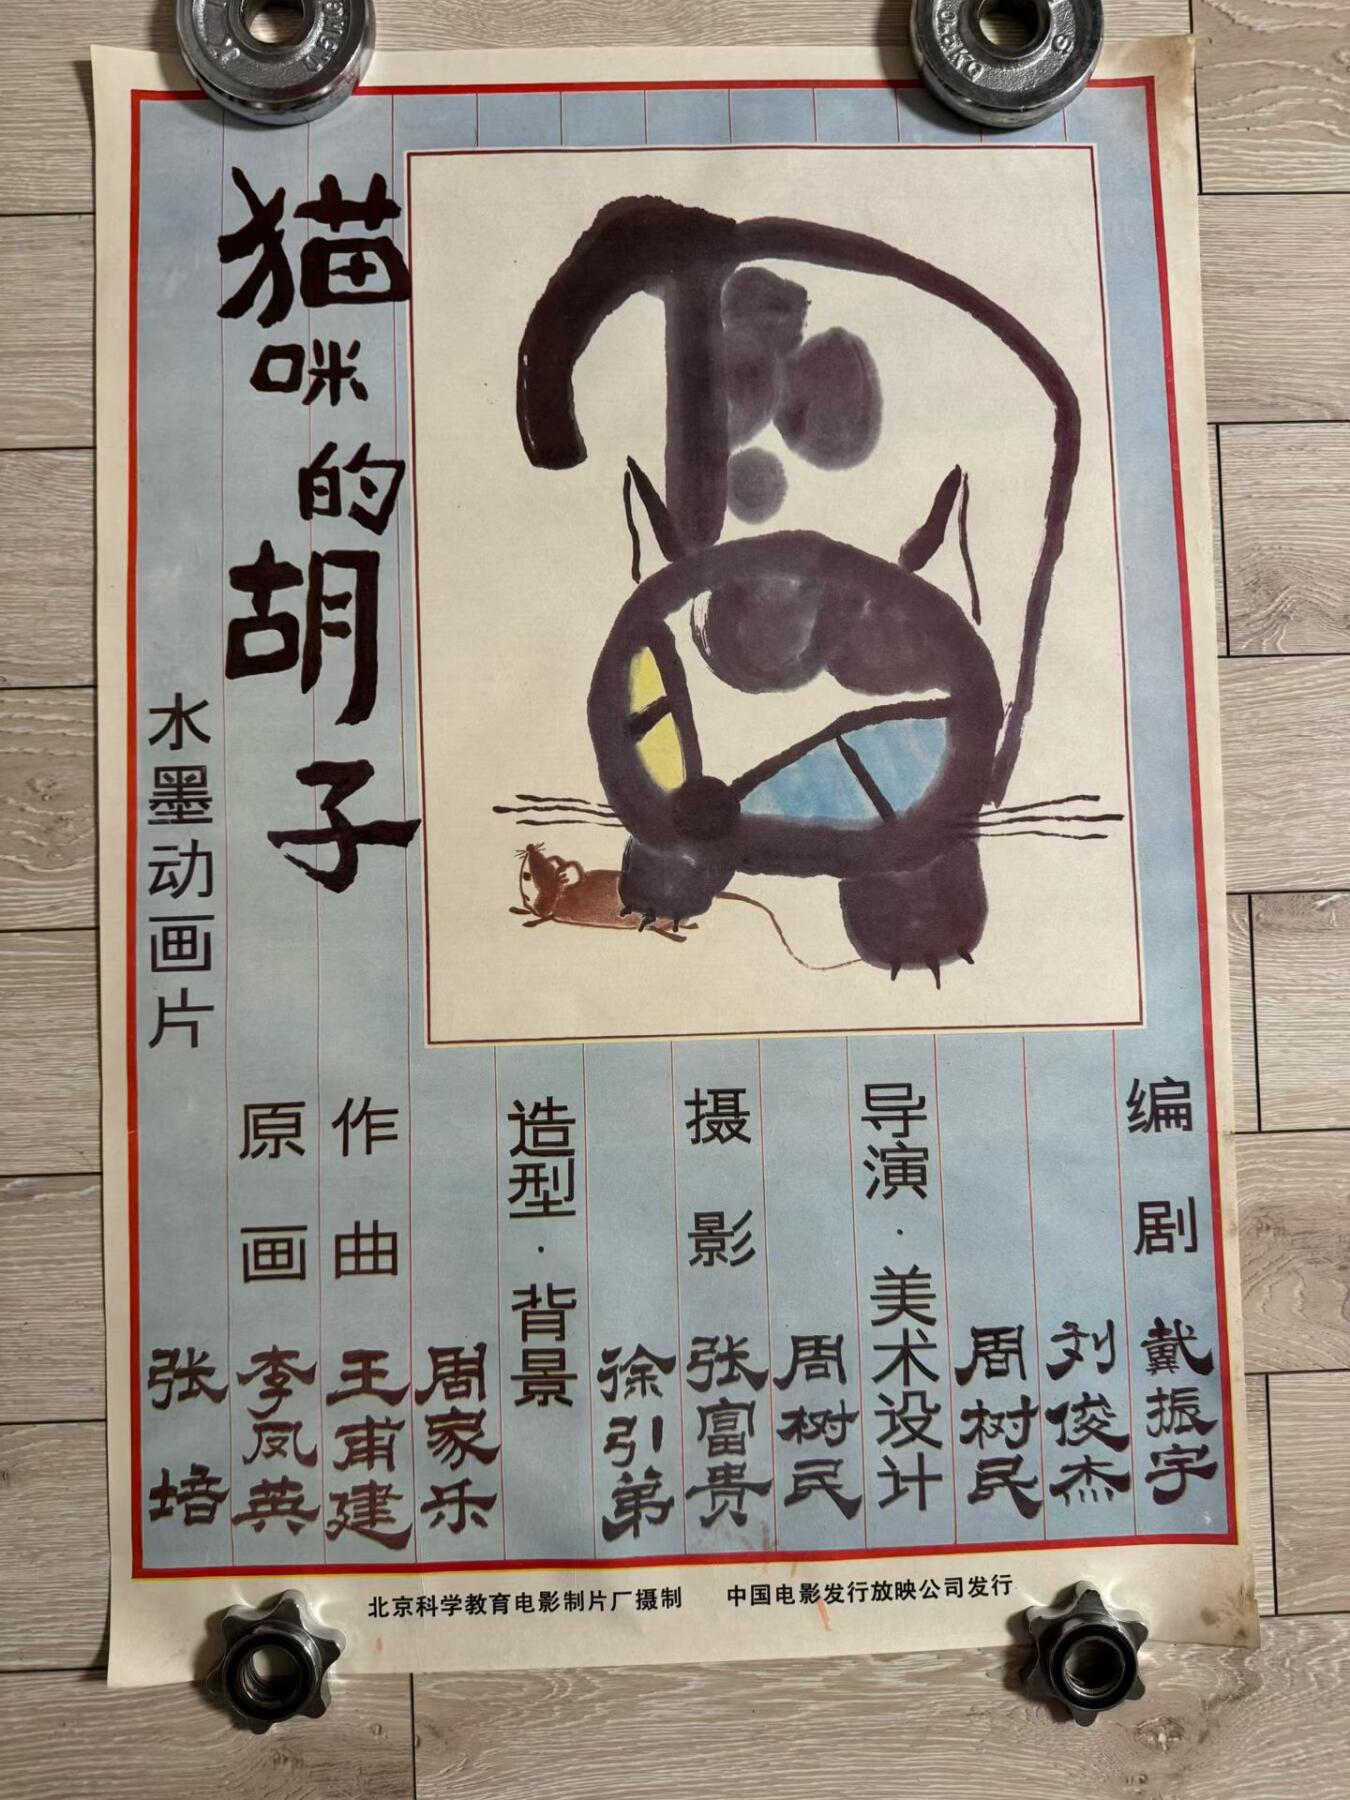 猫咪的胡子
水墨动画片
编剧 戴振宇
刘俊杰
周树民
导演·美术设计
周树民
摄影 张富贵
徐引弟
造型·背景
周家乐
作曲 王甫建
原画 李凤英
张培
北京科学教育电影制片厂摄制 中国电影发行放映公司发行